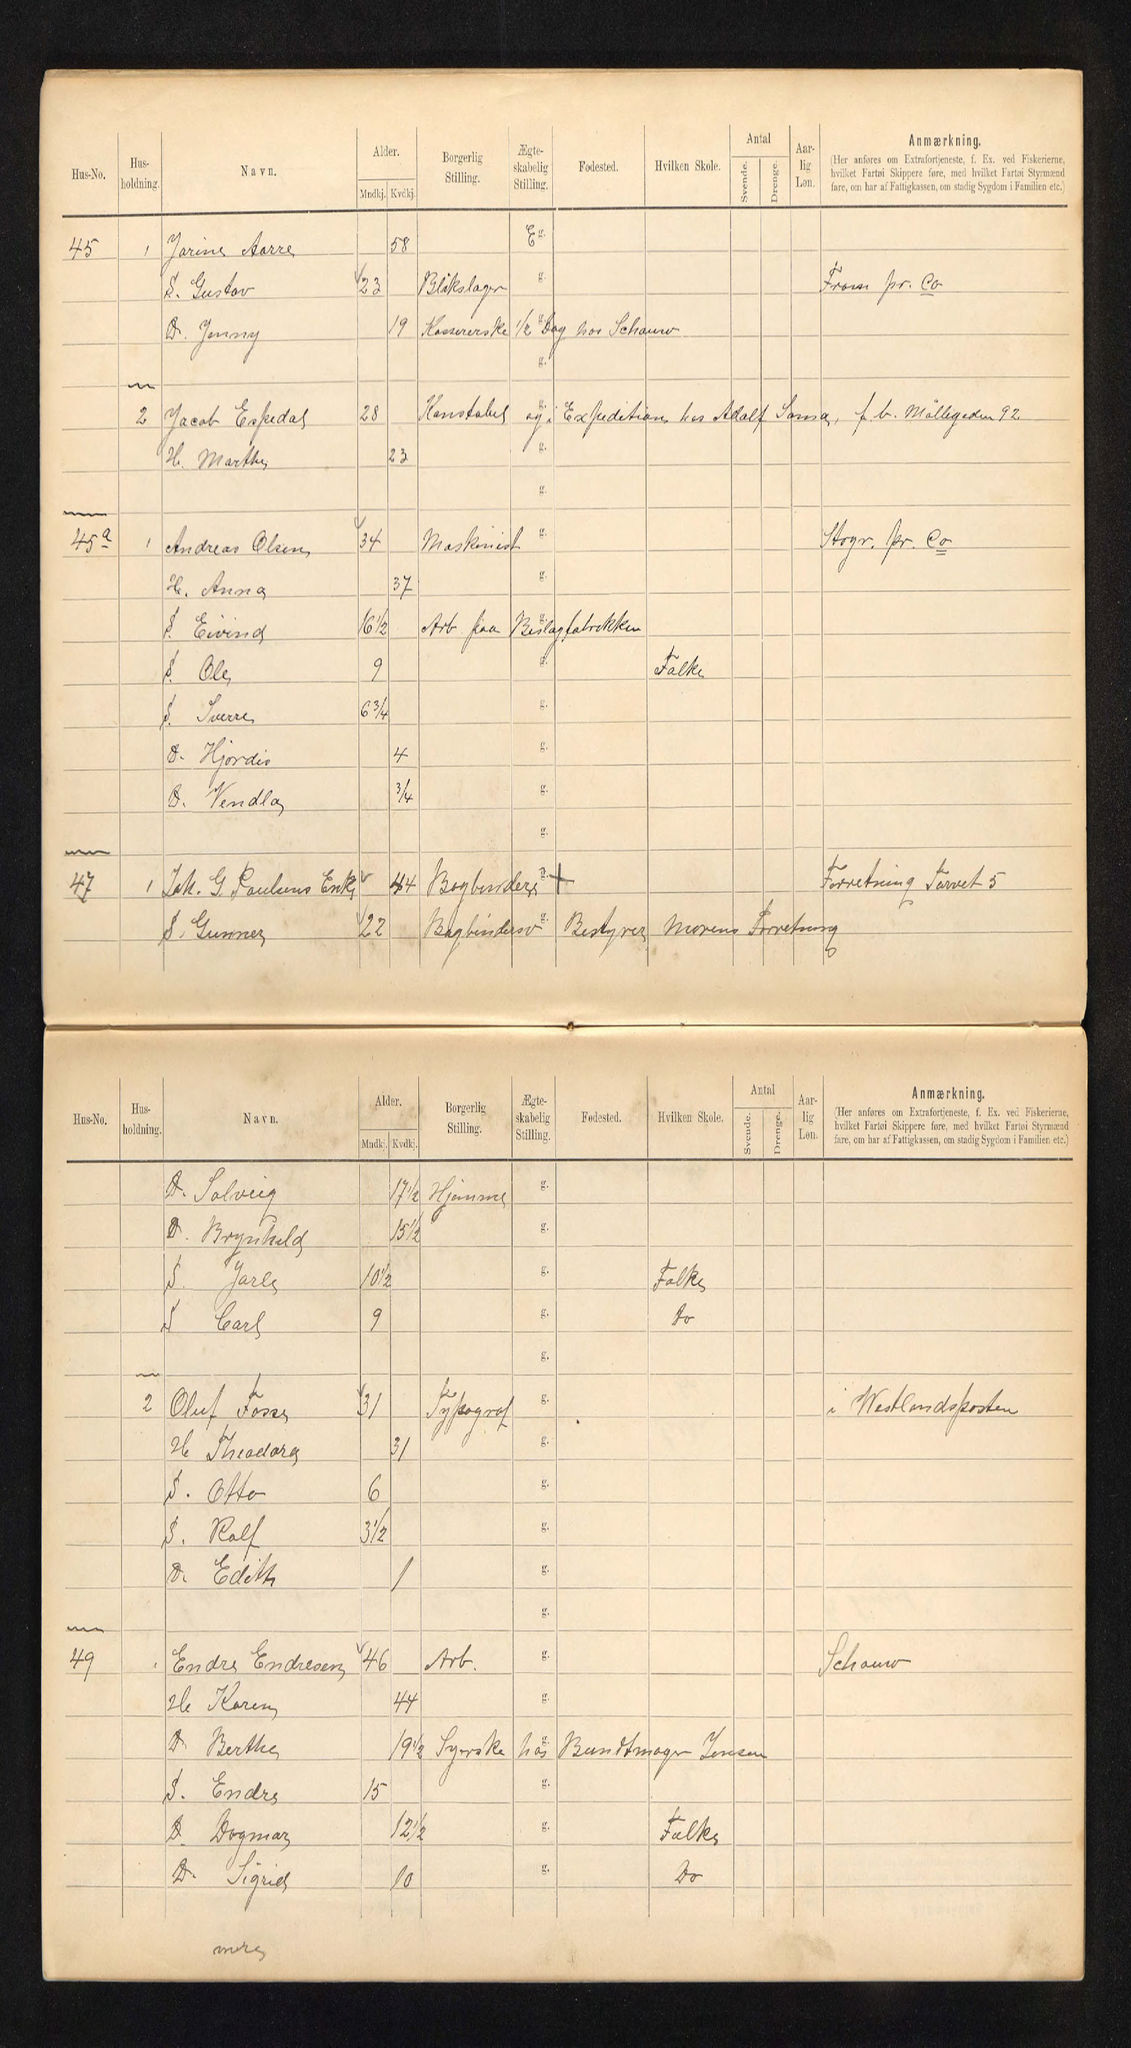 Hus-No. Hus-holdning. Navn. Alder. Mndkj. Kvdkj. Borgerlig Stilling. Ægte-skabelig Stilling. Fødested. Hvilken Skole. Antal Svende. Drenge. Aar-lig Løn. Anmærkning.
(Her anføres om Extrafortjeneste, f. Ex. ved Fiskerierne,
hvilket Fartøi Skippere føre, med hvilket Fartøi Styrmænd
fare, om har af Fattigkassen, om stadig Sygdom i Familien etc.)
45 1 Jorine Aarre 58 E g.
S. Gustav 23 Blikslager g. Fram pr. Co
D. Jenny 19 Kassererske 1/2 Dag hos Schouw g.
g.
2 Jacob Espedal 28 Konstabel og i Expeditionen hos Adolf Sømø, f. b. Møllegaden 92
H. Marthe 23 g.
g.
45a 1 Andreas Olsen 34 Maskinist g. Stogr. pr. Co
H. Anna 37 g.
S. Eivind 16 1/2 Arb paa Beslagfabrikken g.
S. Ole 9 g. Folke
S. Sverre 6 3/4 g.
D. Hjørdis 4 g.
D. Vendla 3/4 g.
g.
47 1 Joh. G. Paulsens Enke 44 Bogbinder g. + Forretning Torvet 5
S. Gunnar 22 Bogbindersv g. Bestyrer Morens Forretning
Hus-No. Hus-holdning. Navn. Alder. Mndkj. Kvdkj. Borgerlig Stilling. Ægte-skabelig Stilling. Fødested. Hvilken Skole. Antal Svende. Drenge. Aar-lig Løn. Anmærkning.
(Her anføres om Extrafortjeneste, f. Ex. ved Fiskerierne,
hvilket Fartøi Skippere føre, med hvilket Fartøi Styrmænd
fare, om har af Fattigkassen, om stadig Sygdom i Familien etc.)
D. Solveig 17 1/2 Hjemme g.
D. Brynhild 15 1/2 g.
S. Jarle 10 1/2 g. Folke
S Carl 9 g. Do
g.
2 Oluf Fosse 31 Typograf g. i Westlandsposten
H Theodora 31 g.
S. Otto 6 g.
S. Rolf 3 1/2 g.
D. Edith 1 g.
g.
49 Endre Endresen 46 Arb. g. Schouw
H Karen 44 g.
D Berthe 19 1/2 Syerske hos Bundtmager Jensen g.
S. Endre 15 g.
D. Dagmar 12 1/2 g. Folke
D. Sigrid 10 g. Do